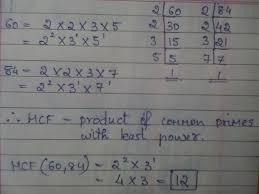 60 = 2 × 2 × 3 × 5
= 2² × 3¹ × 5¹
84 = 2 × 2 × 3 × 7
= 2² × 3¹ × 7¹
2 | 60
2 | 30
3 | 15
5 | 5
1
2 | 84
2 | 42
3 | 21
7 | 7
1
∴ HCF - product of common primes
with least power.
HCF (60,84) = 2² × 3¹
= 4 × 3 = 12